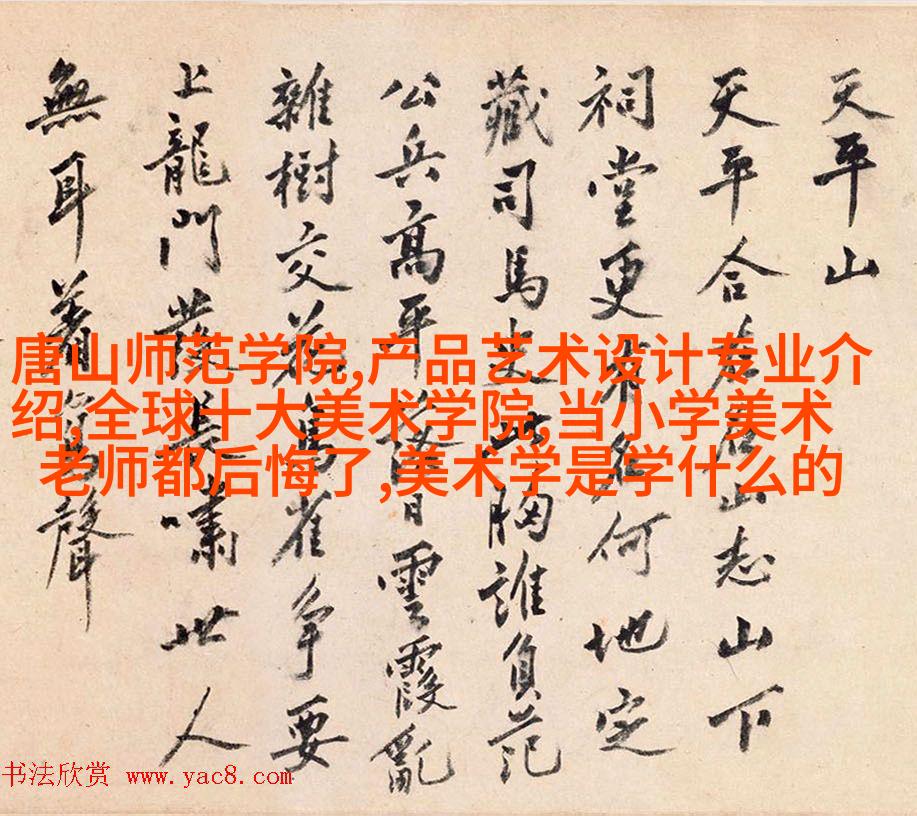 天平山
天平合唐山志山下
祠堂更何地定
藏司馬史此胸誰負范
公兵高平雲霞亂
雜樹交雀争要
上龍門長嘯世人
無耳着聲
唐山师范学院,产品艺术设计专业介
绍,全球十大美术学院,当小学美术
老师都后悔了,美术学是学什么的
书法欣赏 www.yac8.com